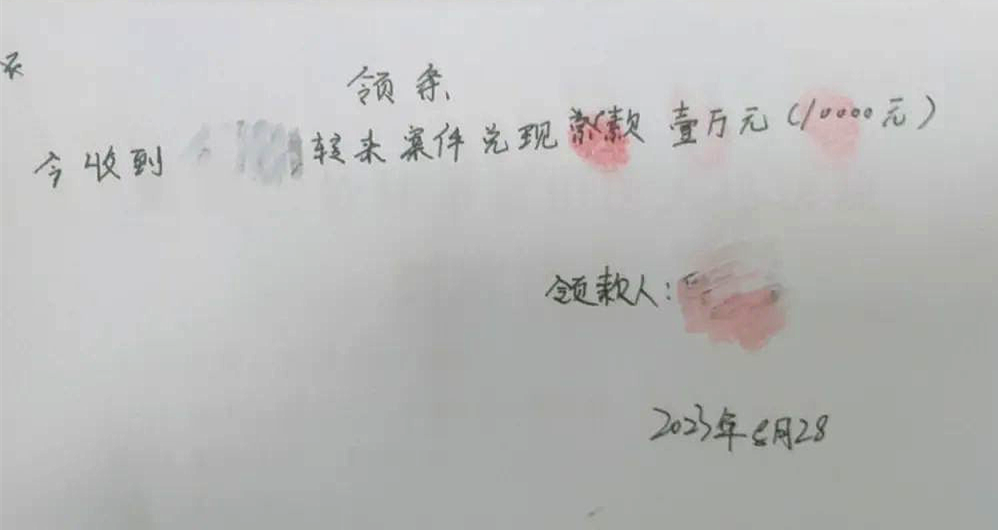 领条
今收到 转来案件兑现 款 壹万元(10000元)
领款人:
2023年 月28